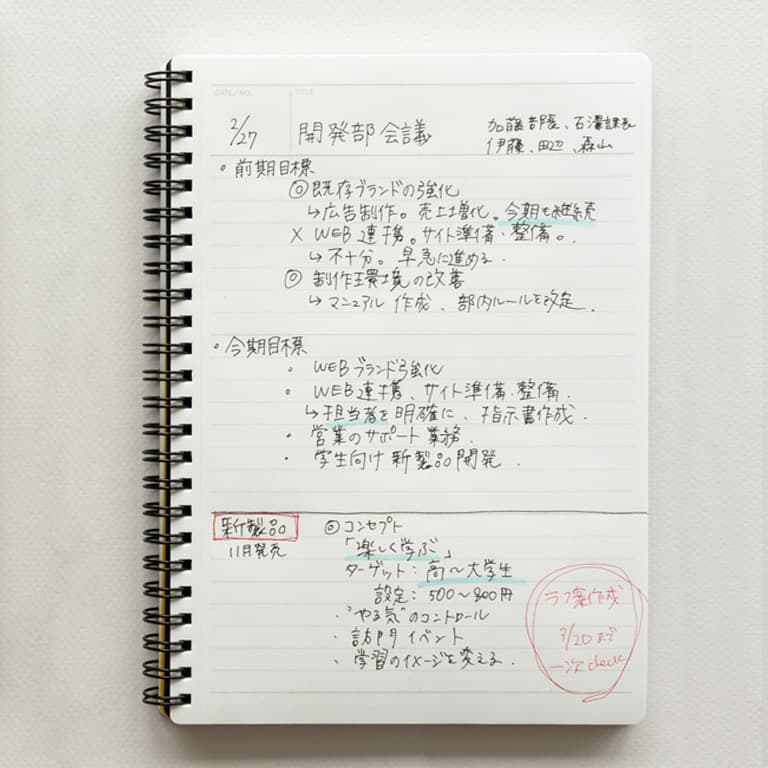 DATE/NO.
TITLE
2/27
開発部会議
加藤部長、石澤課長
伊藤、田辺、森山
・前期目標
◎既存ブランドの強化
↳広告制作。売上増化。今期も継続
× WEB連携。サイト準備・整備。
↳不十分。早急に進める.
◎ 制作環境の改善
↳マニュアル作成、部内ルールを改定.
・今期目標
・ WEBブランド強化
・ WEB連携、サイト準備・整備.
↳担当者を明確に、指示書作成.
・ 営業のサポート業務.
・ 学生向け新製品開発.
新製品
11月発売
◎コンセプト
「楽しく学ぶ」
ターゲット：高〜大学生
設定：500〜800円
・"やる気"のコントロール
・訪問イベント
・学習のイメージを変える.
ラフ案作成
3/20まで
一次check